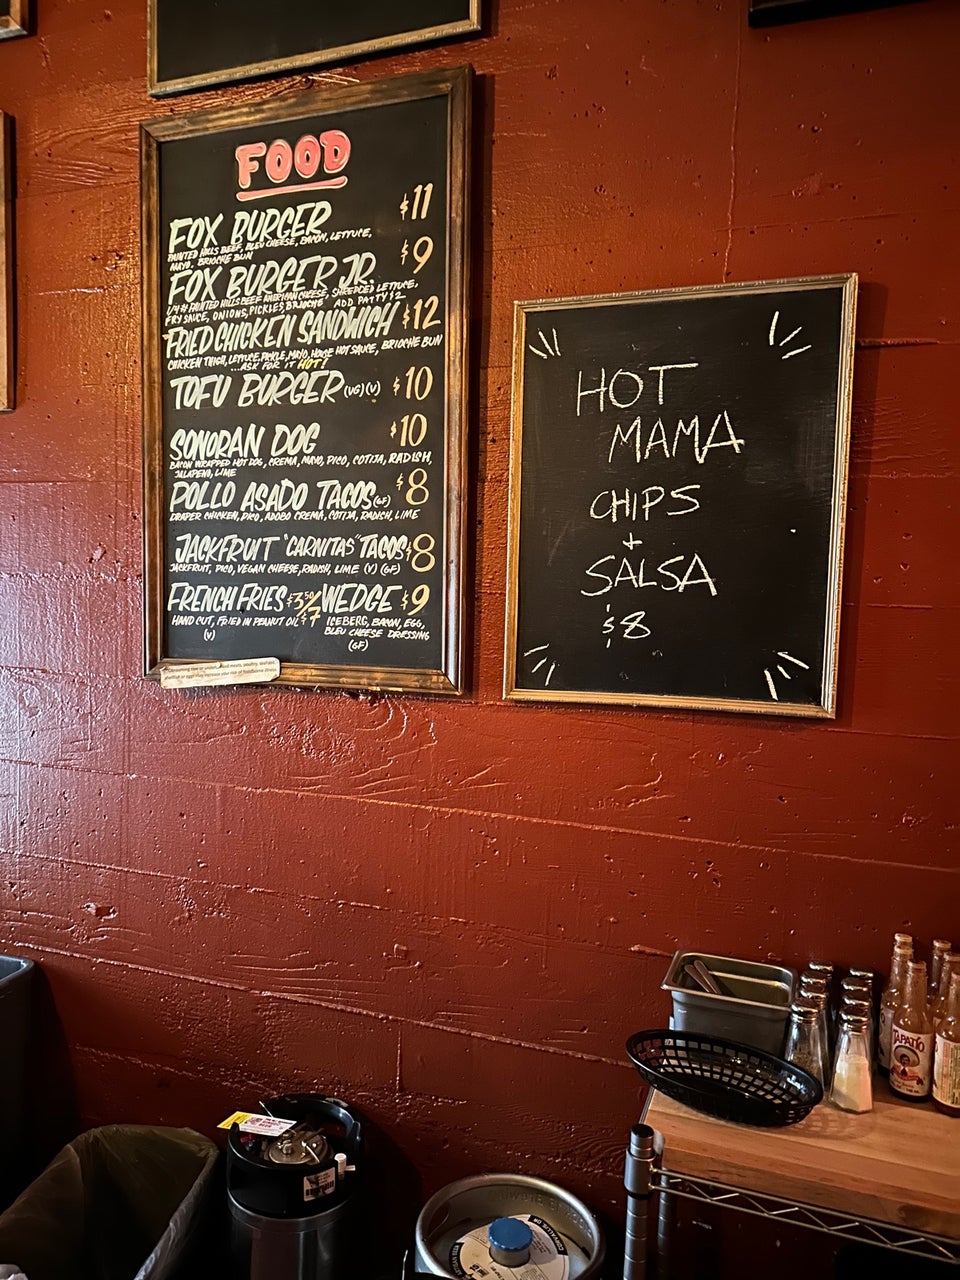 FOOD
FOX BURGER $11
PAINTED HILLS BEEF, BLEU CHEESE, BACON, LETTUCE,
MAYO, BRIOCHE BUN
FOX BURGER JR. $9
1/4 # PAINTED HILLS BEEF AMERICAN CHEESE, SHREDDED LETTUCE,
FRY SAUCE, ONIONS, PICKLES, BRIOCHE ADD PATTY $2
FRIED CHICKEN SANDWICH $12
CHICKEN THIGH, LETTUCE, PICKLE, MAYO, HOUSE HOT SAUCE, BRIOCHE BUN
...ASK FOR IT HOT!
TOFU BURGER (VG) (V) $10
SONORAN DOG $10
BACON WRAPPED HOT DOG, CREMA, MAYO, PICO, COTIJA, RADISH,
JALAPEÑO, LIME
POLLO ASADO TACOS (GF) $8
DRAPER CHICKEN, PICO, ADOBO CREMA, COTIJA, RADISH, LIME
JACKFRUIT "CARNITAS" TACOS $8
JACKFRUIT, PICO, VEGAN CHEESE, RADISH, LIME (V) (GF)
FRENCH FRIES $3.50/$7
HAND CUT, FRIED IN PEANUT OIL
(V)
WEDGE $9
ICEBERG, BACON, EGG,
BLEU CHEESE DRESSING
(GF)
HOT
MAMA
CHIPS
+
SALSA
$8
TAPATIO